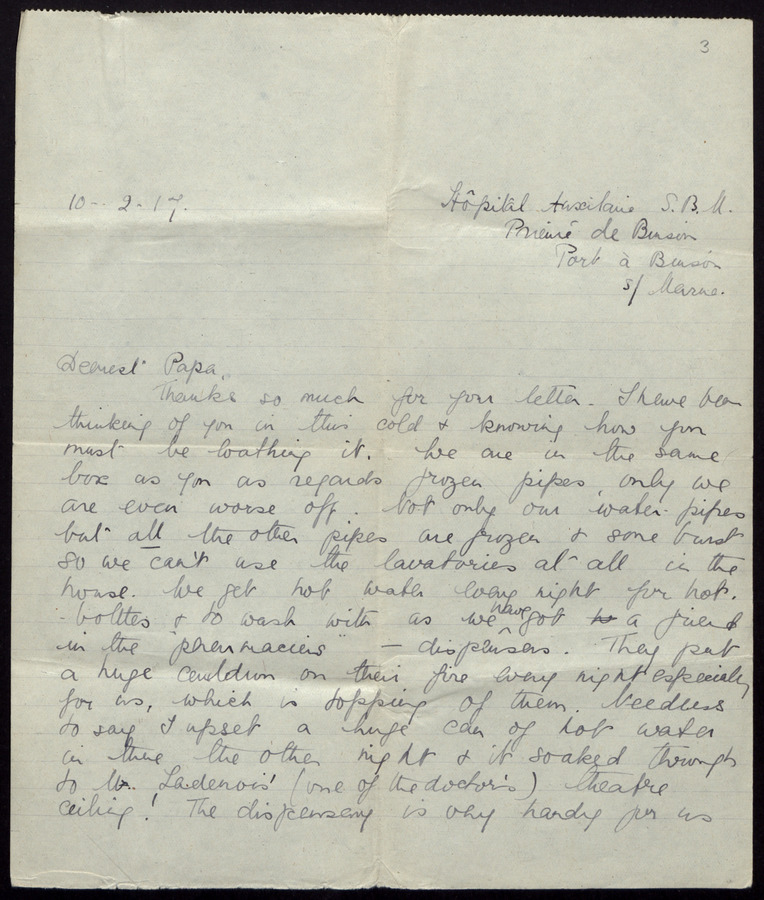 3
10 - 2 - 17.
Hôpital Auxiliaire S.B.M.
Prieuré de Binson
Port à Binson
s/ Marne.
Dearest Papa,
Thanks so much for your letter. I have been
thinking of you in this cold & knowing how you
must be loathing it. We are in the same
box as you as regards frozen pipes, only we
are even worse off. Not only our water-pipes
but all the other pipes are frozen & some burst
so we can't use the lavatories at all in the
house. We get hot water every night for hot.
-bolttes & to wash with as we have got a friend
in the "pharmaciens" — dispensers. They put
a huge cauldron on their fire every night especially
for us, which is topping of them. Needless
to say I upset a huge can of hot water
in there the other night & it soaked through
to Mr. Ladenois' (one of the doctor's) theatre
ceiling! The dispensary is very handy for us